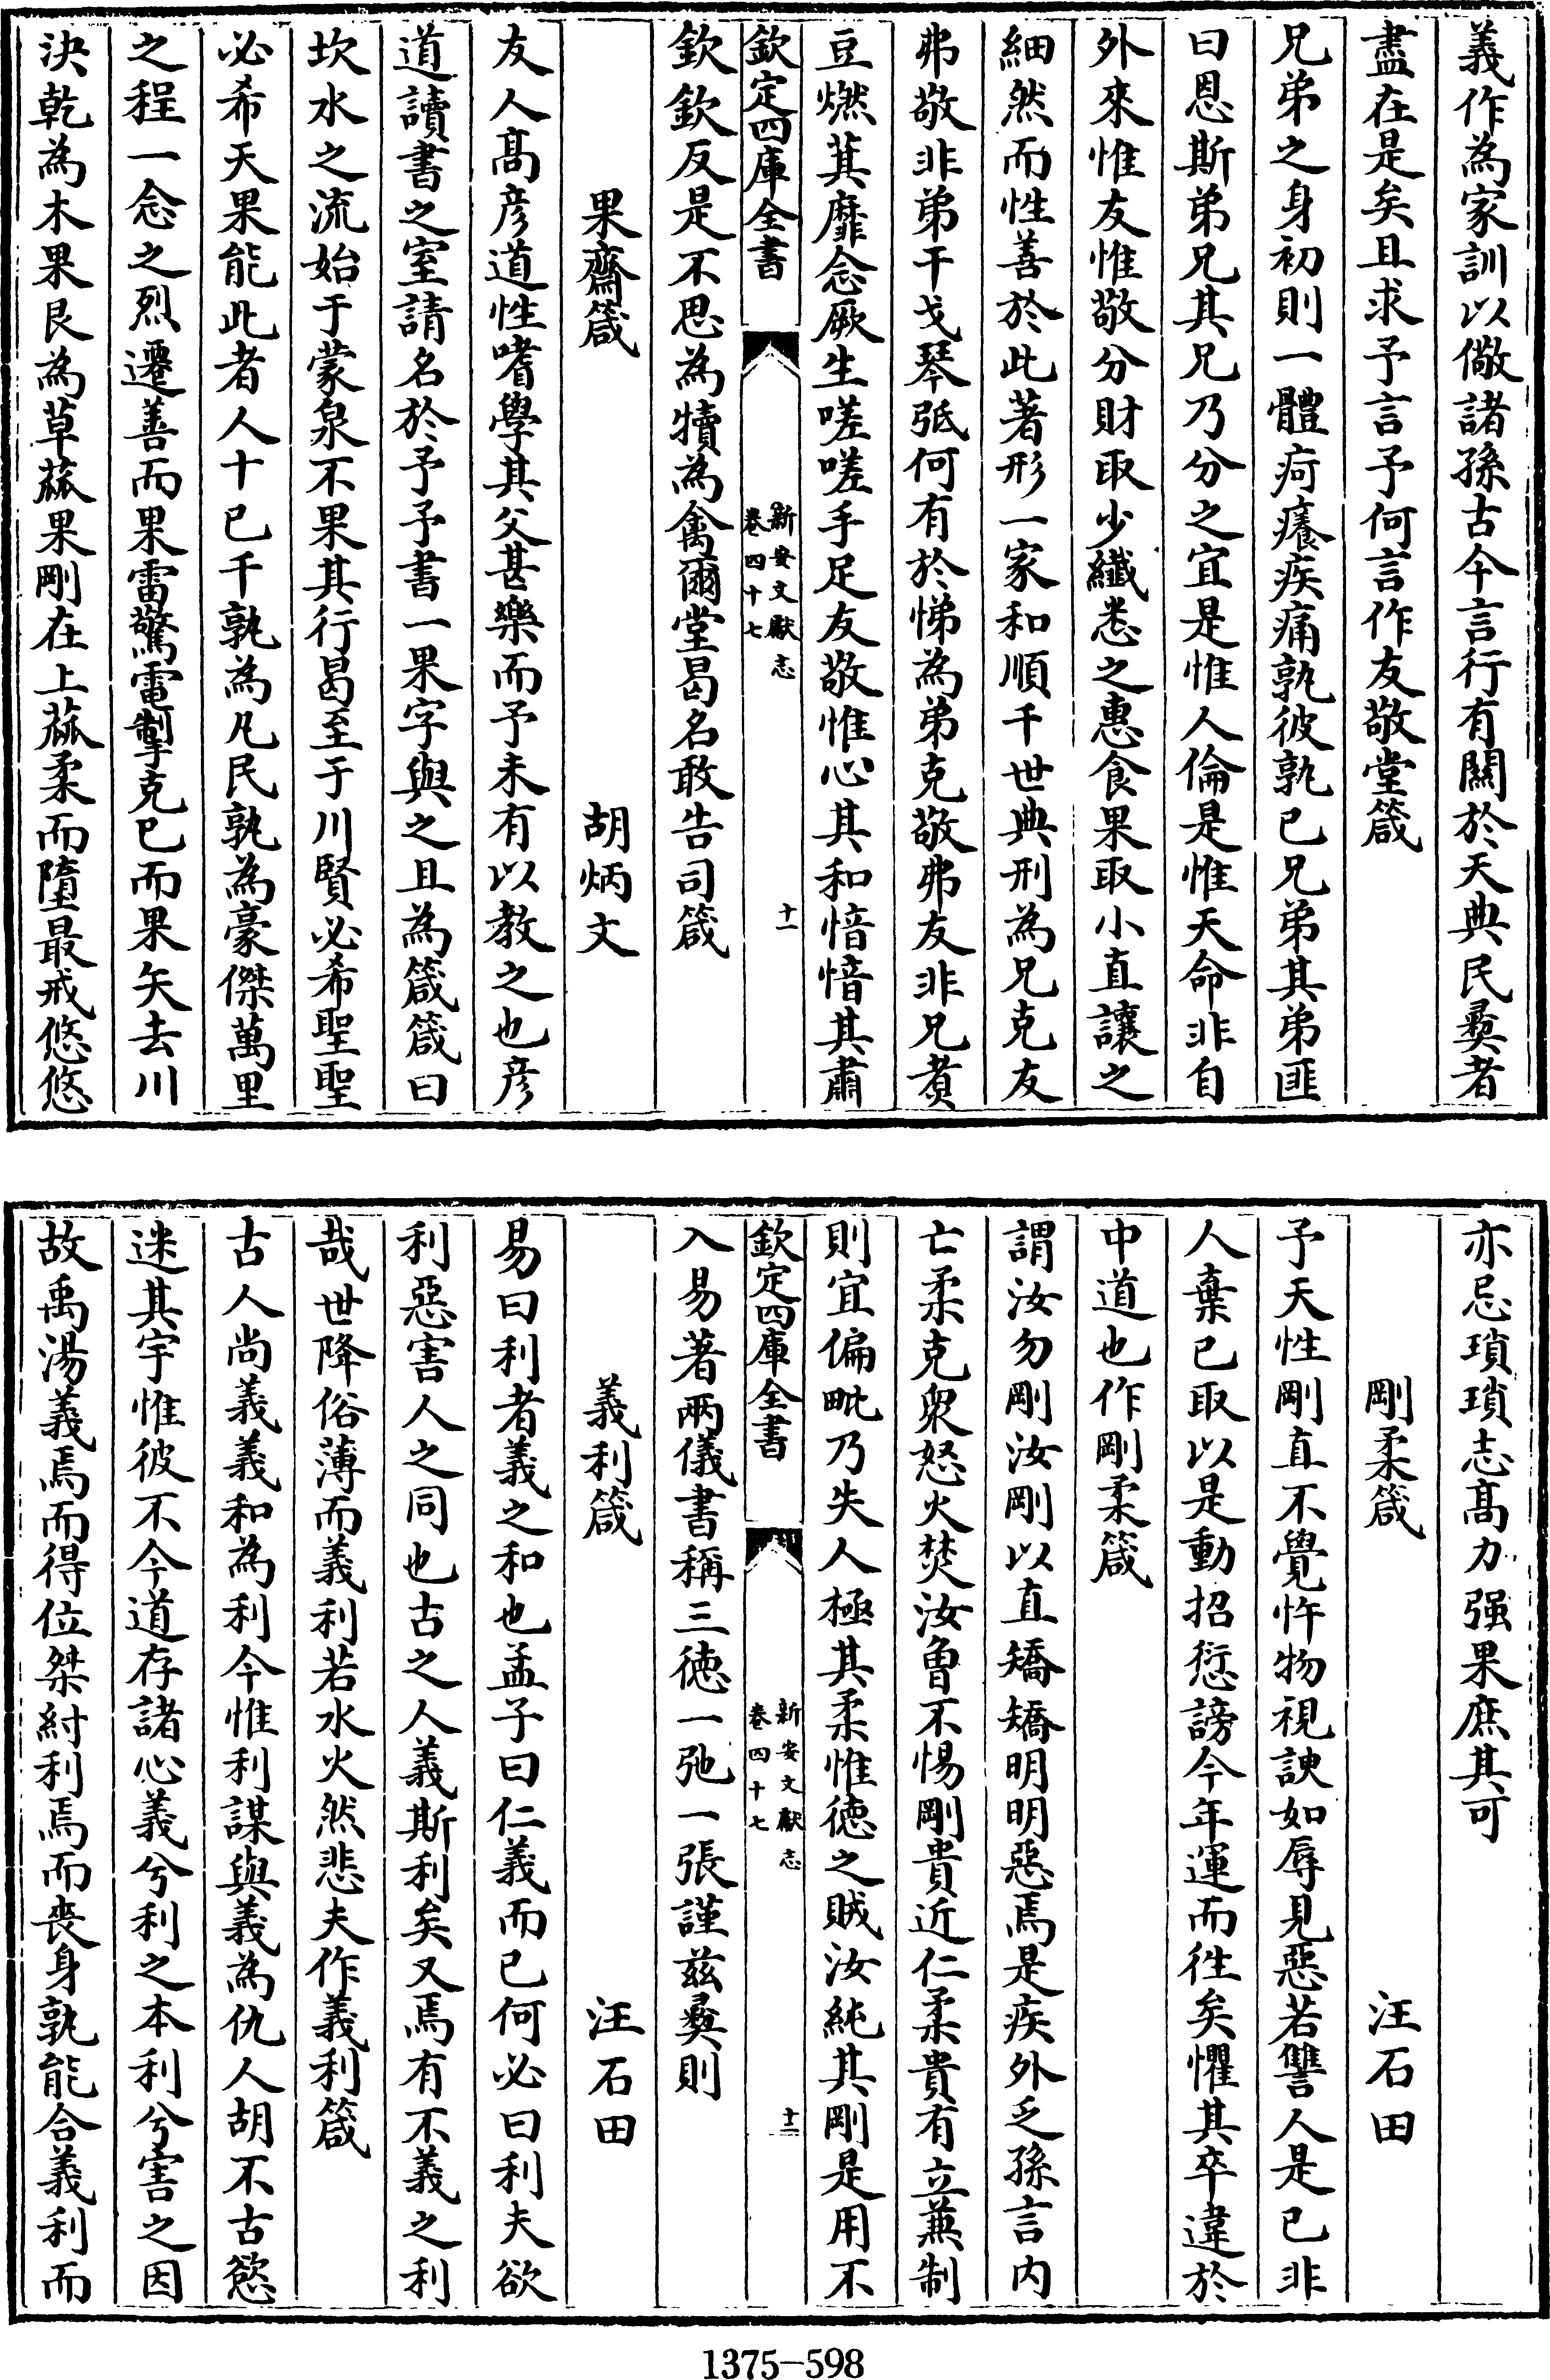 義作為家訓以儆諸孫古今言行有關於天典民彛者
盡在是矣且求予言予何言作友敬堂箴
兄弟之身初則一體疴癢疾痛孰彼孰已兄弟其弟匪
曰恩斯弟兄其兄乃分之宜是惟人倫是惟天命非自
外來惟友惟敬分財取少纎悉之惠食果取小直讓之
細然而性善於此著形一家和順千世典刑為兄克友
弗敬非弟干戈琴弤何有於悌為弟克敬弗友非兄煑
豆燃萁靡念厥生嗟嗟手足友敬惟心其和愔愔其肅
欽定四庫全書
新安文獻志
卷四十七
十一
欽欽反是不思為犢為禽爾堂曷名敢告司箴
果齋箴
胡炳文
友人髙彦道性嗜學其父甚樂而予未有以教之也彦
道讀書之室請名於予予書一果字與之且為箴箴曰
坎水之流始于蒙泉不果其行曷至于川賢必希聖聖
必希天果能此者人十已千孰為凡民孰為豪傑萬里
之程一念之烈遷善而果雷驚電掣克已而果矢去川
決乾為木果艮為草蓏果剛在上蓏柔而墮最戒悠悠
亦忌瑣瑣志髙力强果庶其可
剛柔箴
汪石田
予天性剛直不覺忤物視諛如辱見惡若讐人是已非
人棄已取以是動招愆謗今年運而徃矣懼其卒違於
中道也作剛柔箴
謂汝勿剛汝剛以直矯矯明明惡焉是疾外乏孫言内
亡柔克衆怒火焚汝曾不惕剛貴近仁柔貴有立兼制
則宜偏毗乃失人極其柔惟徳之賊汝純其剛是用不
欽定四庫全書
新安文獻志
卷四十七
十二
入易著兩儀書稱三徳一弛一張謹兹彛則
義利箴
汪石田
易曰利者義之和也孟子曰仁義而已何必曰利夫欲
利惡害人之同也古之人義斯利矣又焉有不義之利
哉世降俗薄而義利若水火然悲夫作義利箴
古人尚義義和為利今惟利謀與義為仇人胡不古慾
迷其宇惟彼不今道存諸心義兮利之本利兮害之因
故禹湯義焉而得位桀紂利焉而喪身孰能合義利而
1375-598